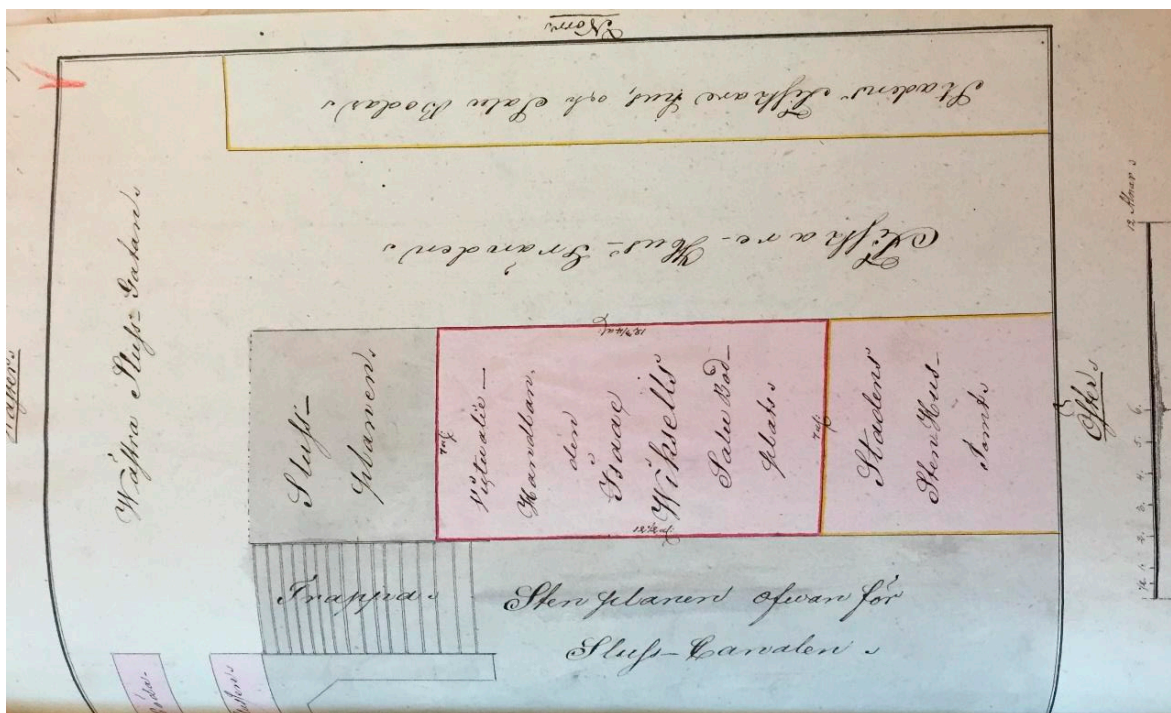 Norr.
Stadens Fiskare hus, och Salu Bodar.
Fiskare-Hus-Gränden.
Wästra Sluss-Gatan.
Sluss-
planen.
Victualie-
Handlan-
den
Isaac
Wiksells
Salu Bod-
plats.
Stadens
Sten Hus-
Tomt.
Trappa.
Sten planen ofvan för
Sluss-Canalen.
Öster.
12 Alnar.
6.
5.
4.
3.
2.
1.